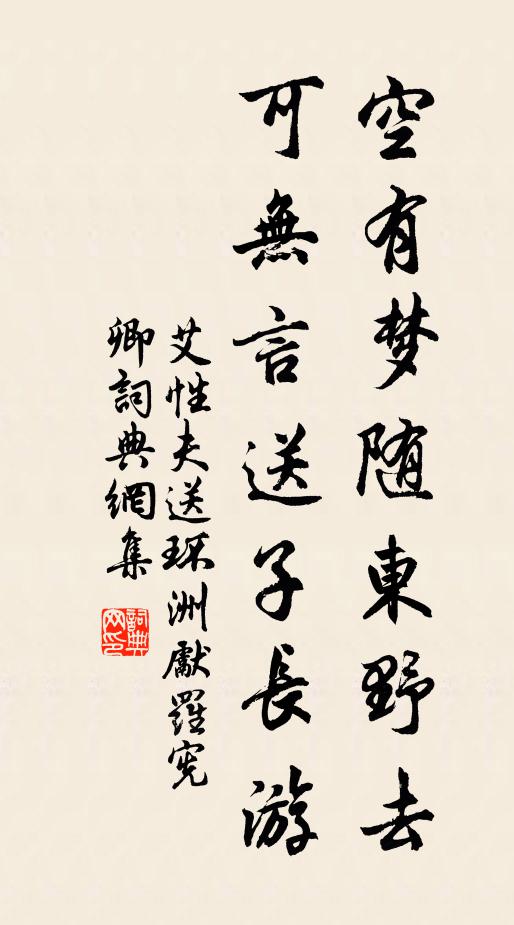 空有梦随東野去
可無言送子長游
艾性夫送环洲獻羅宪
卿詞典網集
詞典
网印